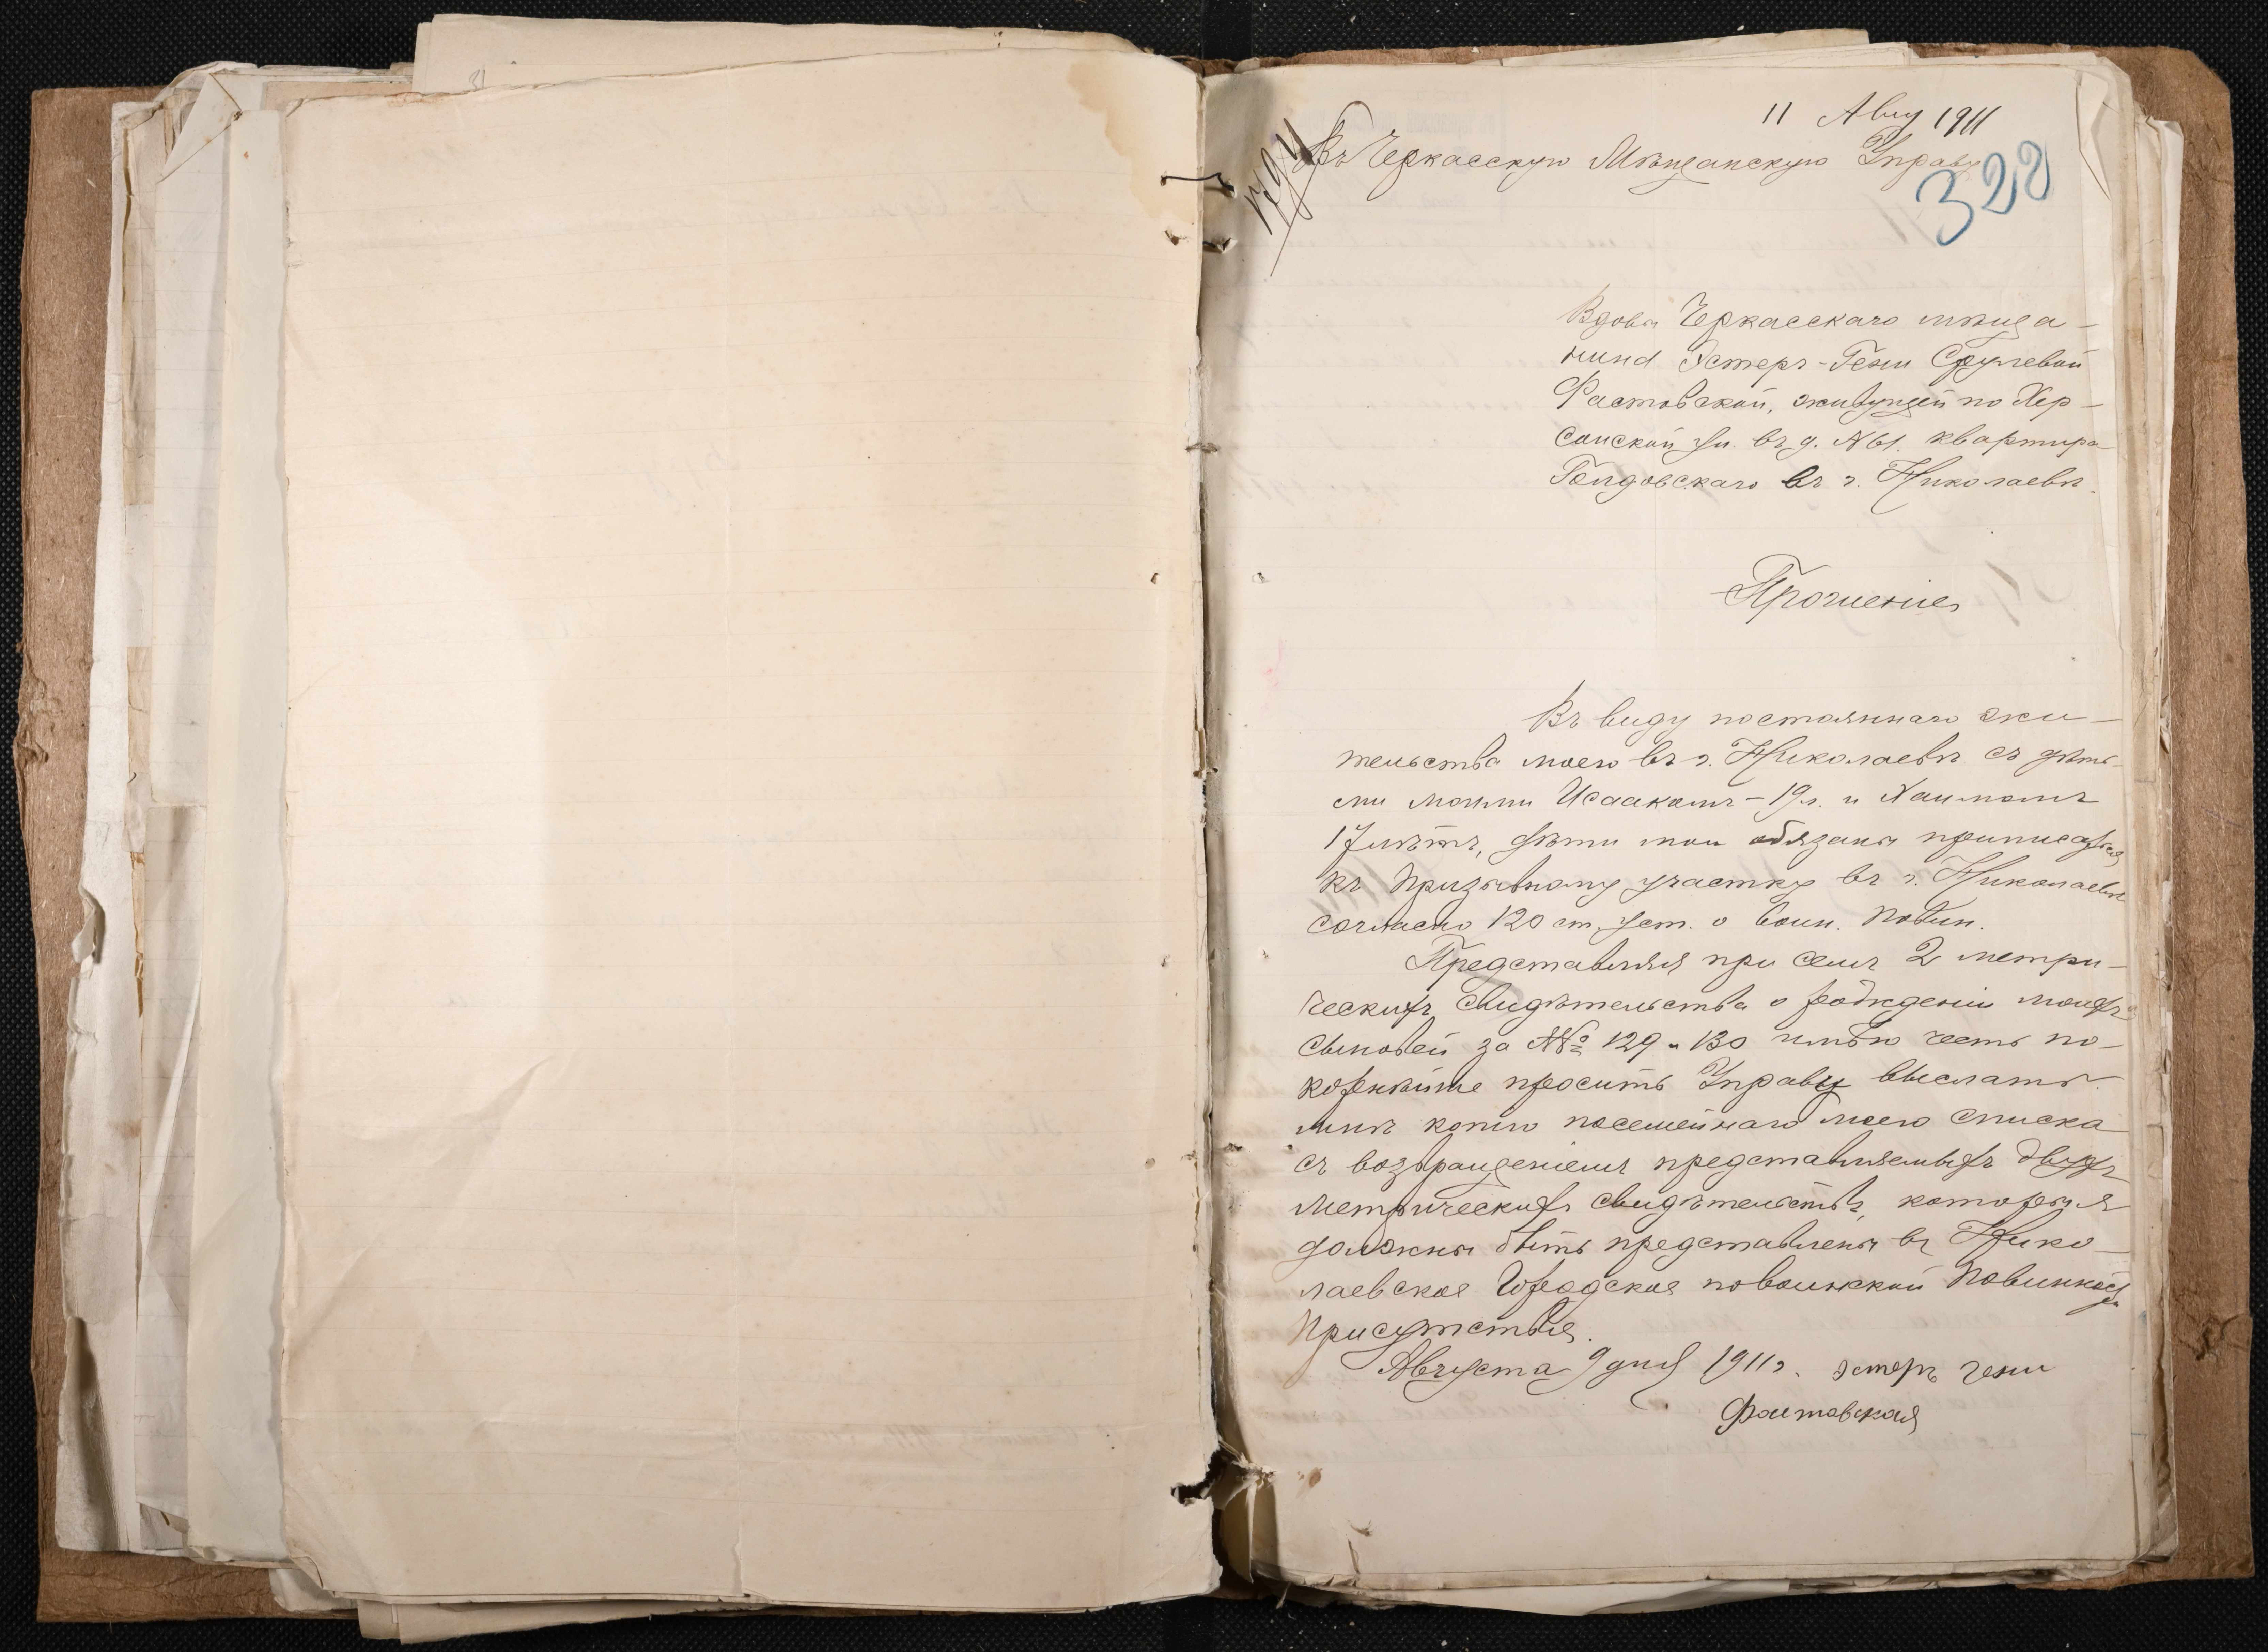 11 Авгу 1911
Въ Черкасскую Мѣщанскую Управу
328
Вдовы Черкасскаго мѣща-
нина Эстеръ-Гени Срулевой
Фастовской, живущей по Хер-
сонской ул. въ д. №61. квартира
въ г. Николаевѣ.
Прошеніе
Въ виду постояннаго жи-
тельства моего въ г. Николаевѣ съ дѣть-
ми моими Исаакомъ - 19 л. и Хаимомъ
17 лѣтъ, дѣти мои обязаны приписаться
къ призывному участку въ г. Николаевѣ
согласно 120 ст. уст. о воин. повин.
Представляя при семъ 2 метри-
ческихъ свидѣтельства о рожденіи моихъ
сыновей за №№ 129 и 130 имѣю честь по-
корнѣйше просить Управу выслать
мнѣ копію посемейнаго моего списка
съ возвращеніемъ представляемыхъ двухъ
метрическихъ свидѣтельствъ, которыя
должны быть представлены въ Нико-
лаевское Городское по воинской повинности
Присутствіе.
Августа 9 дня 1911 г. Эстеръ Гени
Фастовская